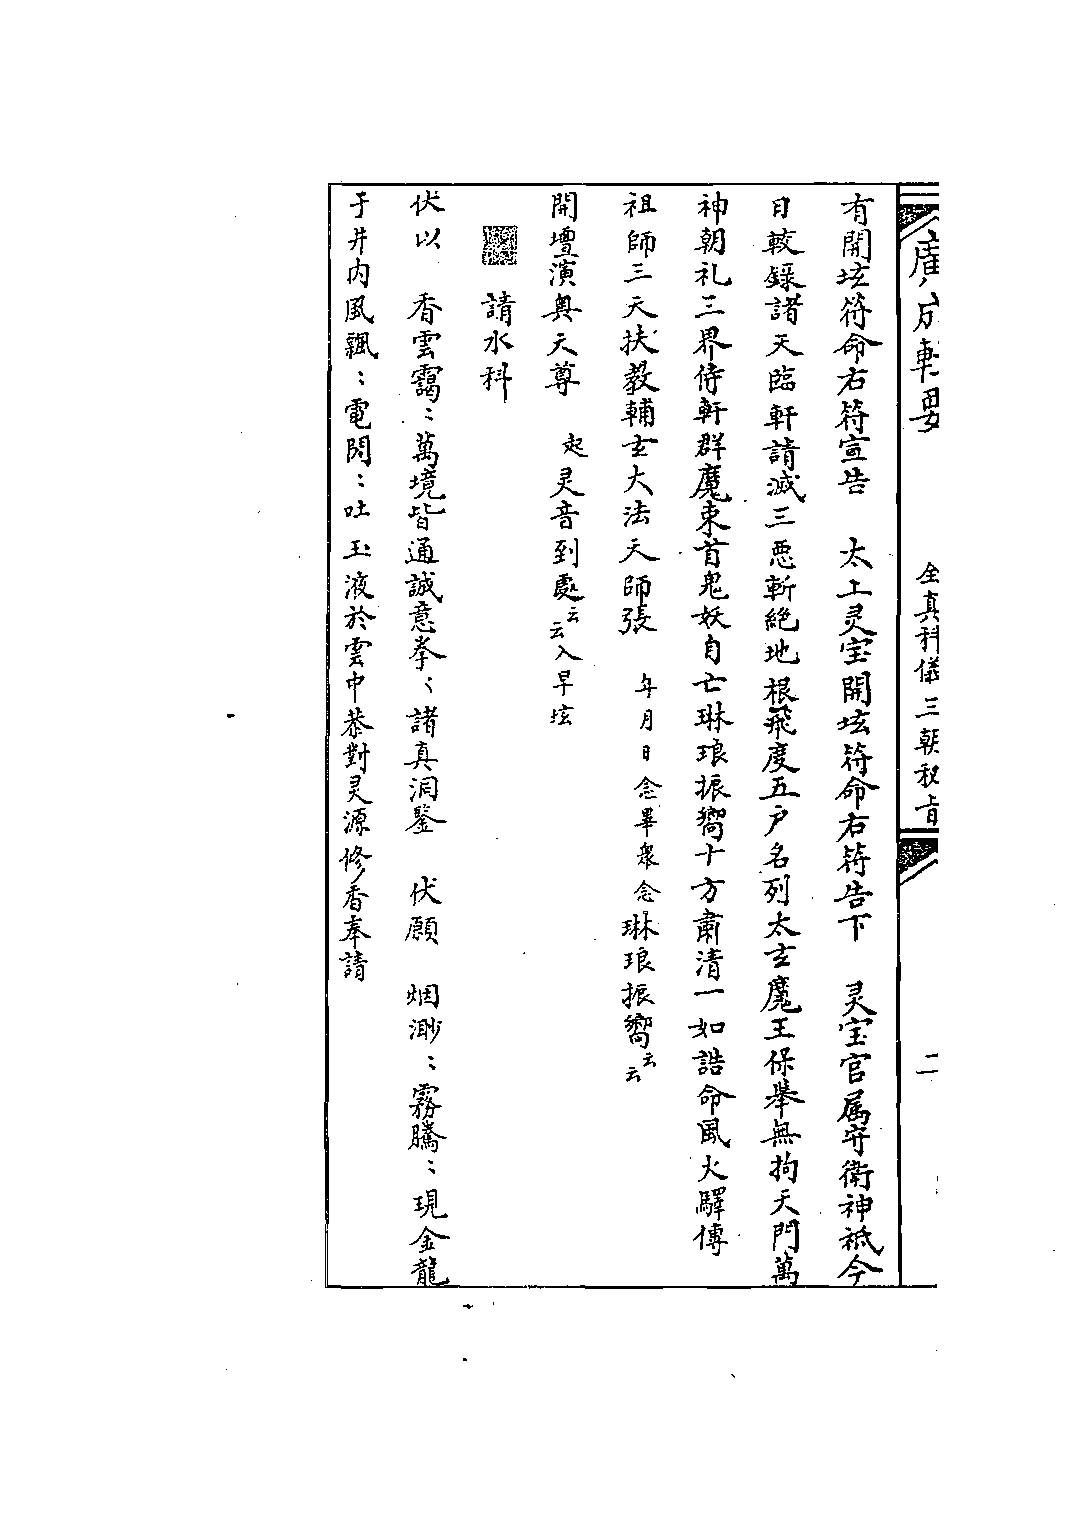 廣成軒要
全真科儀三朝秘旨
二
有開坛符命右符宣告　太上灵宝開坛符命右符告下　灵宝官属守衛神祗今
日較錄諸天臨軒請滅三惡斬絕地根飛度五户名列太玄魔王保舉無拘天門萬
神朝礼三界侍軒群魔束首鬼妖自亡琳琅振嚮十方肅清一如誥命風火驛傳
祖師三天扶教輔玄大法天師張　年月日念畢衆念琳琅振嚮云云
開壇演奥天尊　起灵音到處云云入早坛
請水科
伏以　香雲靄：萬境皆通誠意拳：諸真洞鑒　伏願　烟渺：霧騰：現金龍
于井内風飄：電閃：吐玉液於雲中恭對灵源修香奉請